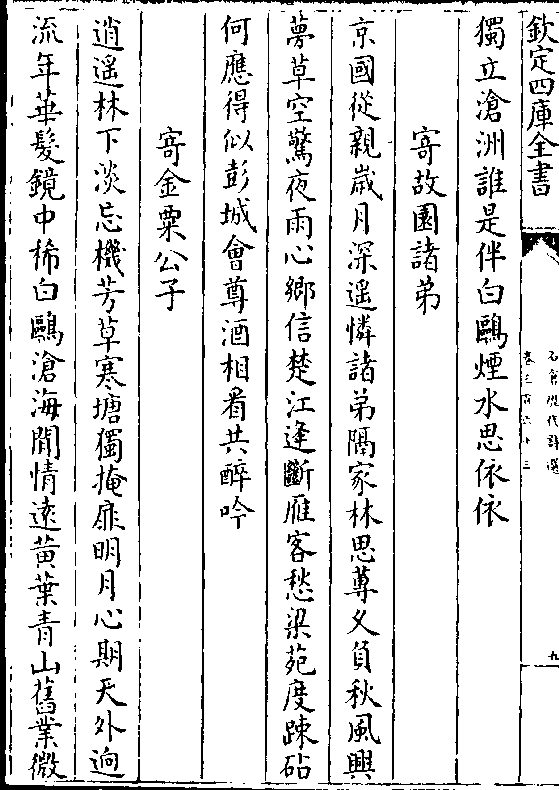 欽定四庫全書
獨立滄洲誰是伴白鷗煙水思依依
寄故園諸弟
京國從親歲月深遥憐諸弟隔家林思蓴又負秋風興
夣草空驚夜雨心鄉信楚江逢斷雁客愁梁苑度踈砧
何應得似彭城會尊酒相看共醉吟
寄金粟公子
逍遥林下淡忘機芳草寒塘獨掩扉明月心期天外逈
流年華髮鏡中稀白鷗滄海閒情遠黄葉青山舊業微
石倉歴代詩選
九